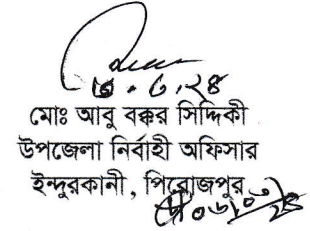 মোঃ আবু বক্কর সিদ্দিকী
উপজেলা নির্বাহী অফিসার
ইন্দুরকানী, পিরোজপুর